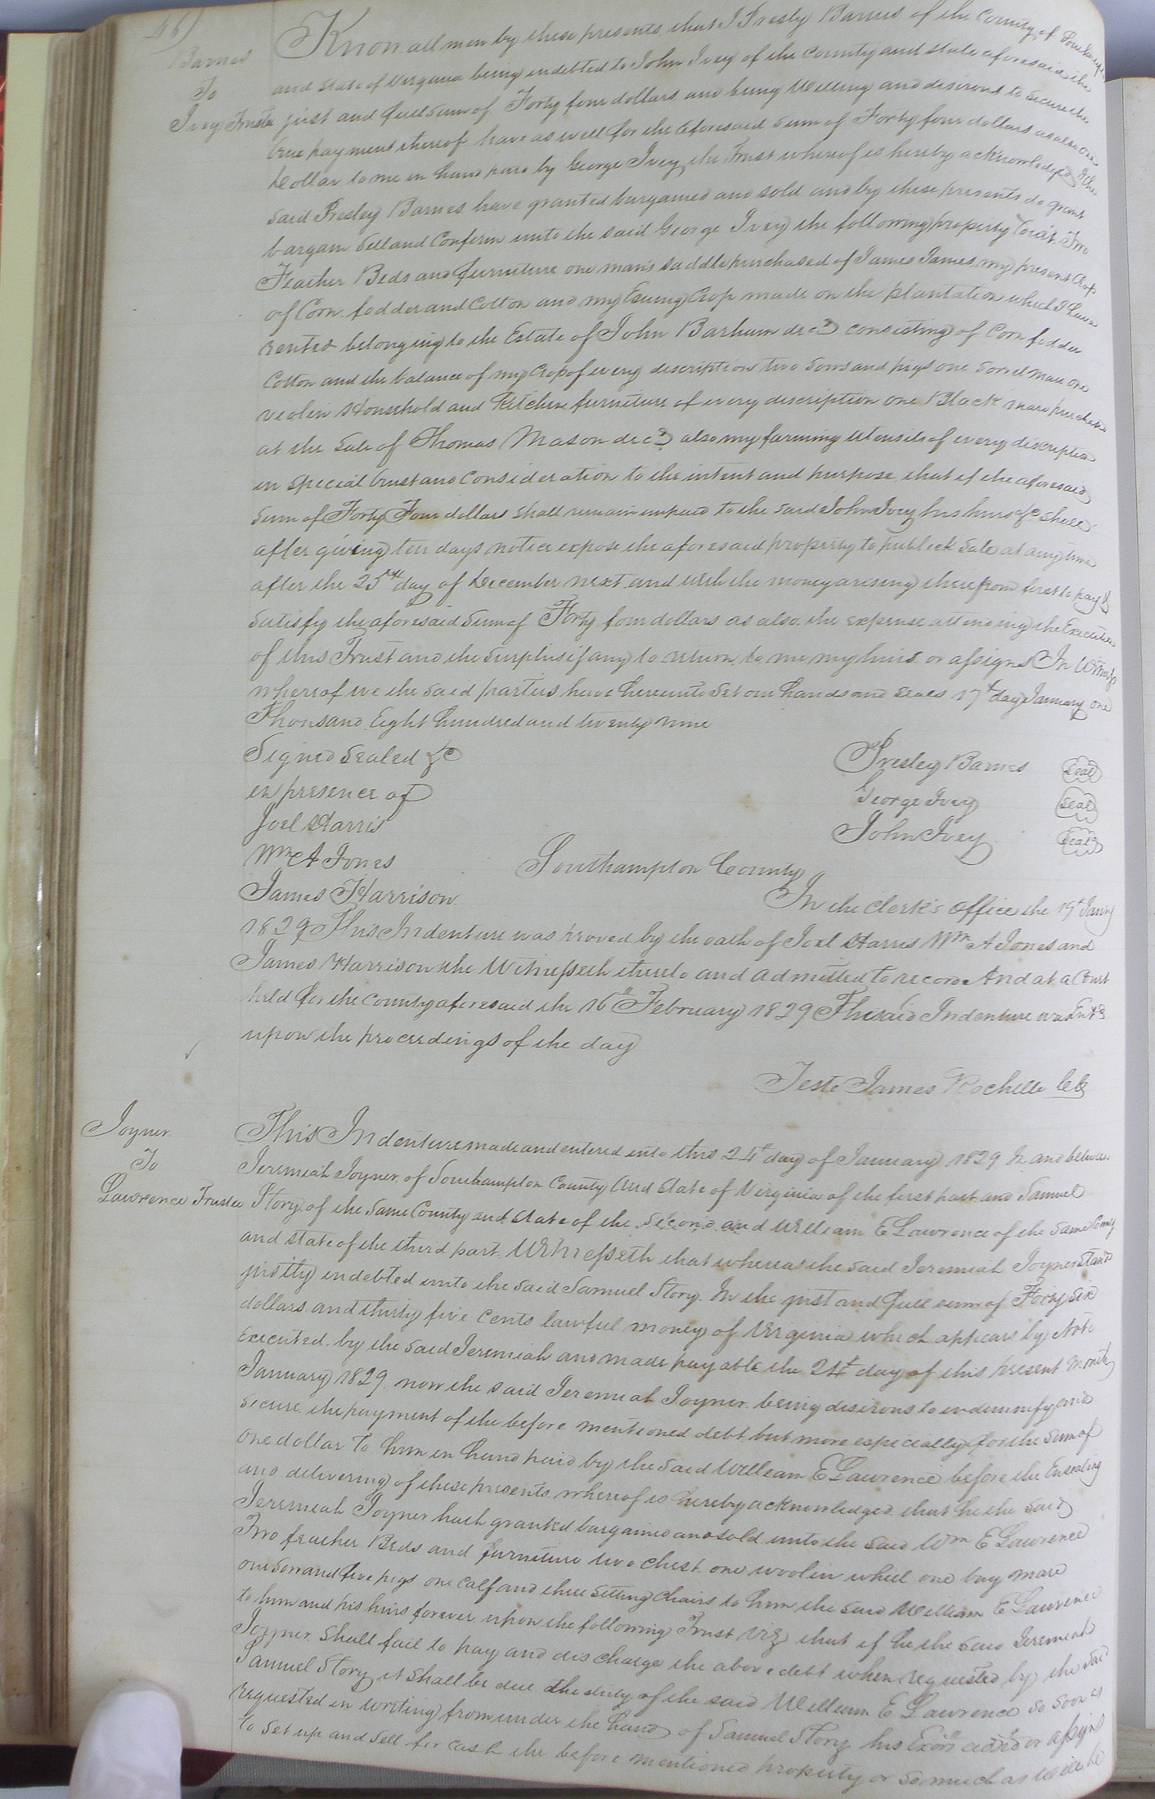 46)
Barnes
To
Ivey Trustee
Know all men by these presents, that I Presley Barnes of the County of Southampton
and State of Virginia being indebted to John Ivey of the County and state aforesaid the
just and full Sum of Forty four dollars and being Willing and desirous to Secure the
true payment thereof have as well for the aforesaid Sum of Forty four dollars as also one
Dollar to me in hand paid by George Ivey the Trust whereof is hereby acknowledged I the
said Presley Barnes have granted bargained and sold and by these presents do grant
bargain Sell and Confirm unto the said George Ivey the following property (viz) Two
Feather Beds and furniture one man's saddle purchased of James James, my present Crop
of Corn fodder and Cotton and my Ensuing Crop made on the plantation which I have
rented belonging to the Estate of John Barham decd consisting of Corn fodder
Cotton and the balance of my Crop of every description two Sows and pigs one Sorrel mare one
violin Household and Kitchen furniture of every description one Black mare purchased
at the Sale of Thomas Mason decd also my farming utensils of every description
in Special trust and Consideration to the intent and purpose that if the aforesaid
Sum of Forty Four dollars shall remain unpaid to the said John Ivey his heirs &c shall
after giving ten days notice expose the aforesaid property to publick Sale at any time
after the 25th day of December next and with the money arising therefrom first to pay &
Satisfy the aforesaid Sum of Forty four dollars as also the expense attending the Execution
of this Trust and the Surplus if any to return to me my heirs or assigns In Witness
whereof we the said parties have hereunto Set our hands and Seals 17th day January one
Thousand Eight hundred and twenty nine
Signed Sealed &c
in presence of
Joel Harris
Wm A Jones
James Harrison
Presley Barnes Seal
George Ivey Seal
John Ivey Seal
Southampton County
In the Clerk's Office the 19th Jany
1829 This Indenture was proved by the oath of Joel Harris Wm A Jones and
James Harrison the Witnesseth thereto and admitted to record And at a Court
held for the County aforesaid the 16th February 1829 The said Indenture was Entd
upon the proceedings of the day
Teste James Rochelle CC
Joyner
To
Lawrence Trustee
This Indenture made and entered into this 24th day of January 1829 by and between
Jeremiah Joyner of Southampton County And State of Virginia of the first part and Samuel
Story of the Same County and State of the Second and William E Lawrence of the Same County
and state of the third part. Witnesseth that whereas the said Jeremiah Joyner Stands
justly indebted unto the said Samuel Story. In the just and full sum of Forty Six
dollars and thirty five Cents lawful money of Virginia which appears by Note
Executed by the Said Jeremiah and made payable the 24th day of this present month
January 1829 now the said Jeremiah Joyner being desirous to indemnify and
Secure the payment of the before mentioned debt but more especially for the Sum of
one dollar To him in hand paid by the said William E Lawrence before the Ensealing
and delivering of these presents whereof is hereby acknowledged that he the said
Jeremiah Joyner hath granted bargained and sold unto the said Wm E Lawrence
Two feather Beds and furniture two chest one woolin wheel one bay mare
one Sow and five pigs one Calf and three Setting Chairs to him the said William E Lawrence
to him and his heirs forever upon the following Trust Viz that if he the said Jeremiah
Joyner Shall fail to pay and discharge the above debt when requested by the said
Samuel Story it shall be due the duty of the said William E Lawrence so soon as
requested in writing from under the hand of Samuel Story his Exors admrs or assigns
to Set up and Sell for cash the before mentioned property or so much as will be